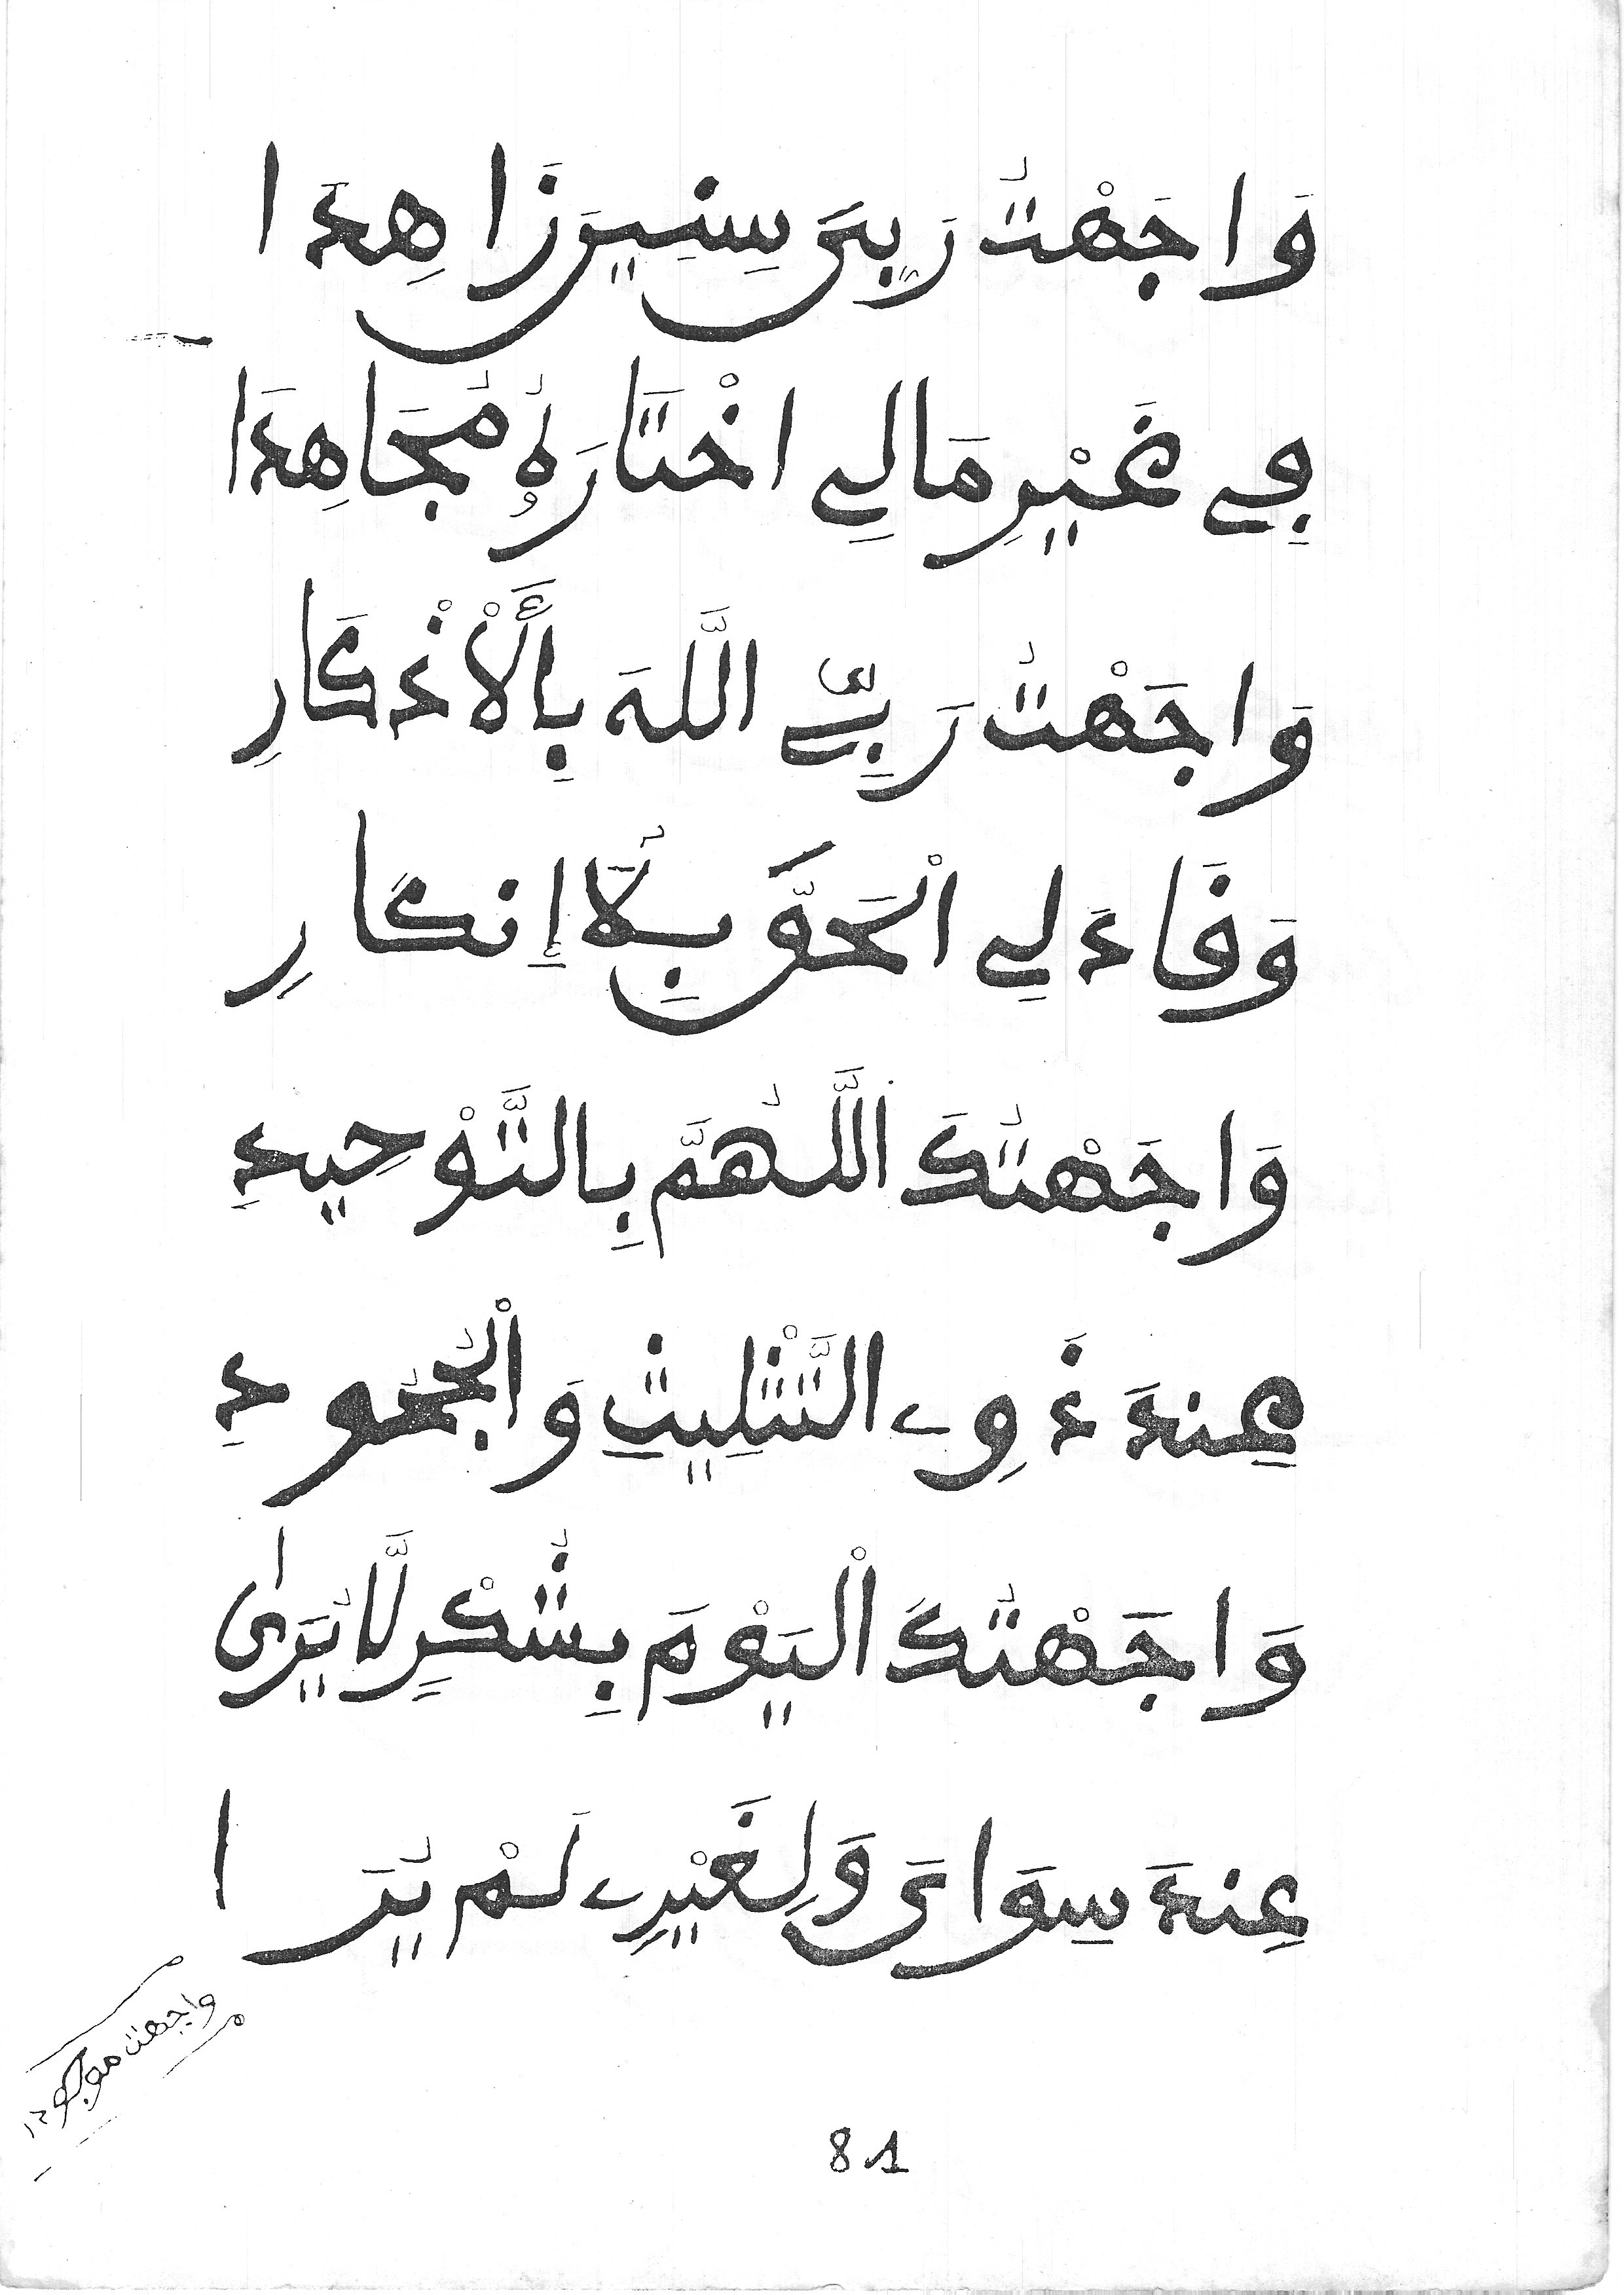 وَاجَهْتُ رَبِّىَ سِنِينَ زَاهِدَا
فِے غَيْرِ مَا لِے اخْتَارَهُۥ مُجَاهِدَا
وَاجَهْتُ رَبِّے اللَّهَ بِالْأَذْكَارِ
وَقَادَ لِے الْحَقَّ بِلَا إِنكَارِ
وَاجَهْتُكَ اللَّهُمَّ بِالتَّوْحِيدِ
عِندَ ذَوِے التَّثْلِيثِ وَالْجُمُودِ
وَاجَهْتُكَ الْيَوْمَ بِشُكْرٍ لَّا يُرَىٰ
عِندَ سِوَاىَ وَلِغَيْرِے لَمْ يُرَا
واجهت
81